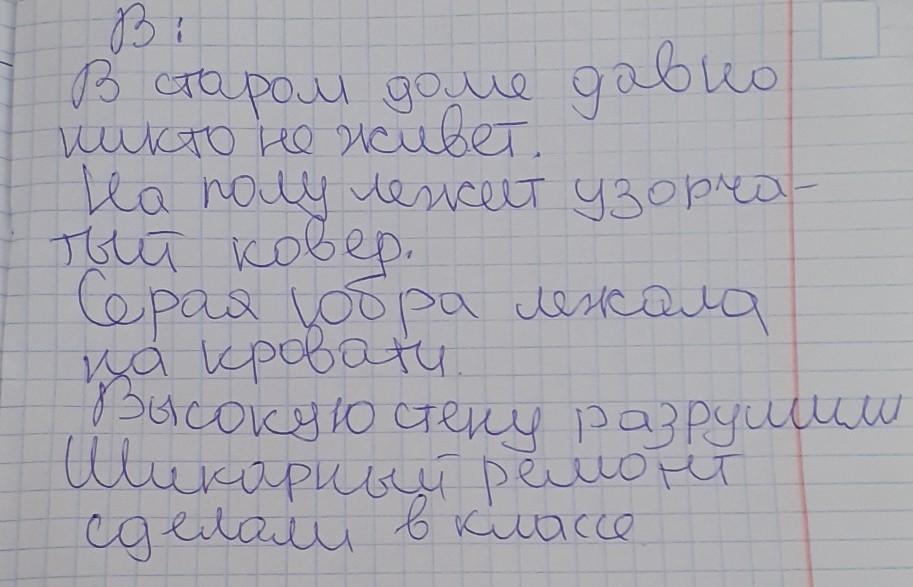 В:
В старом доме давно
никто не живет.
На полу лежит узорча-
тый ковер.
Серая кобра лежала
на кровати.
Высокую стену разрушили
Шикарный ремонт
сделали в классе